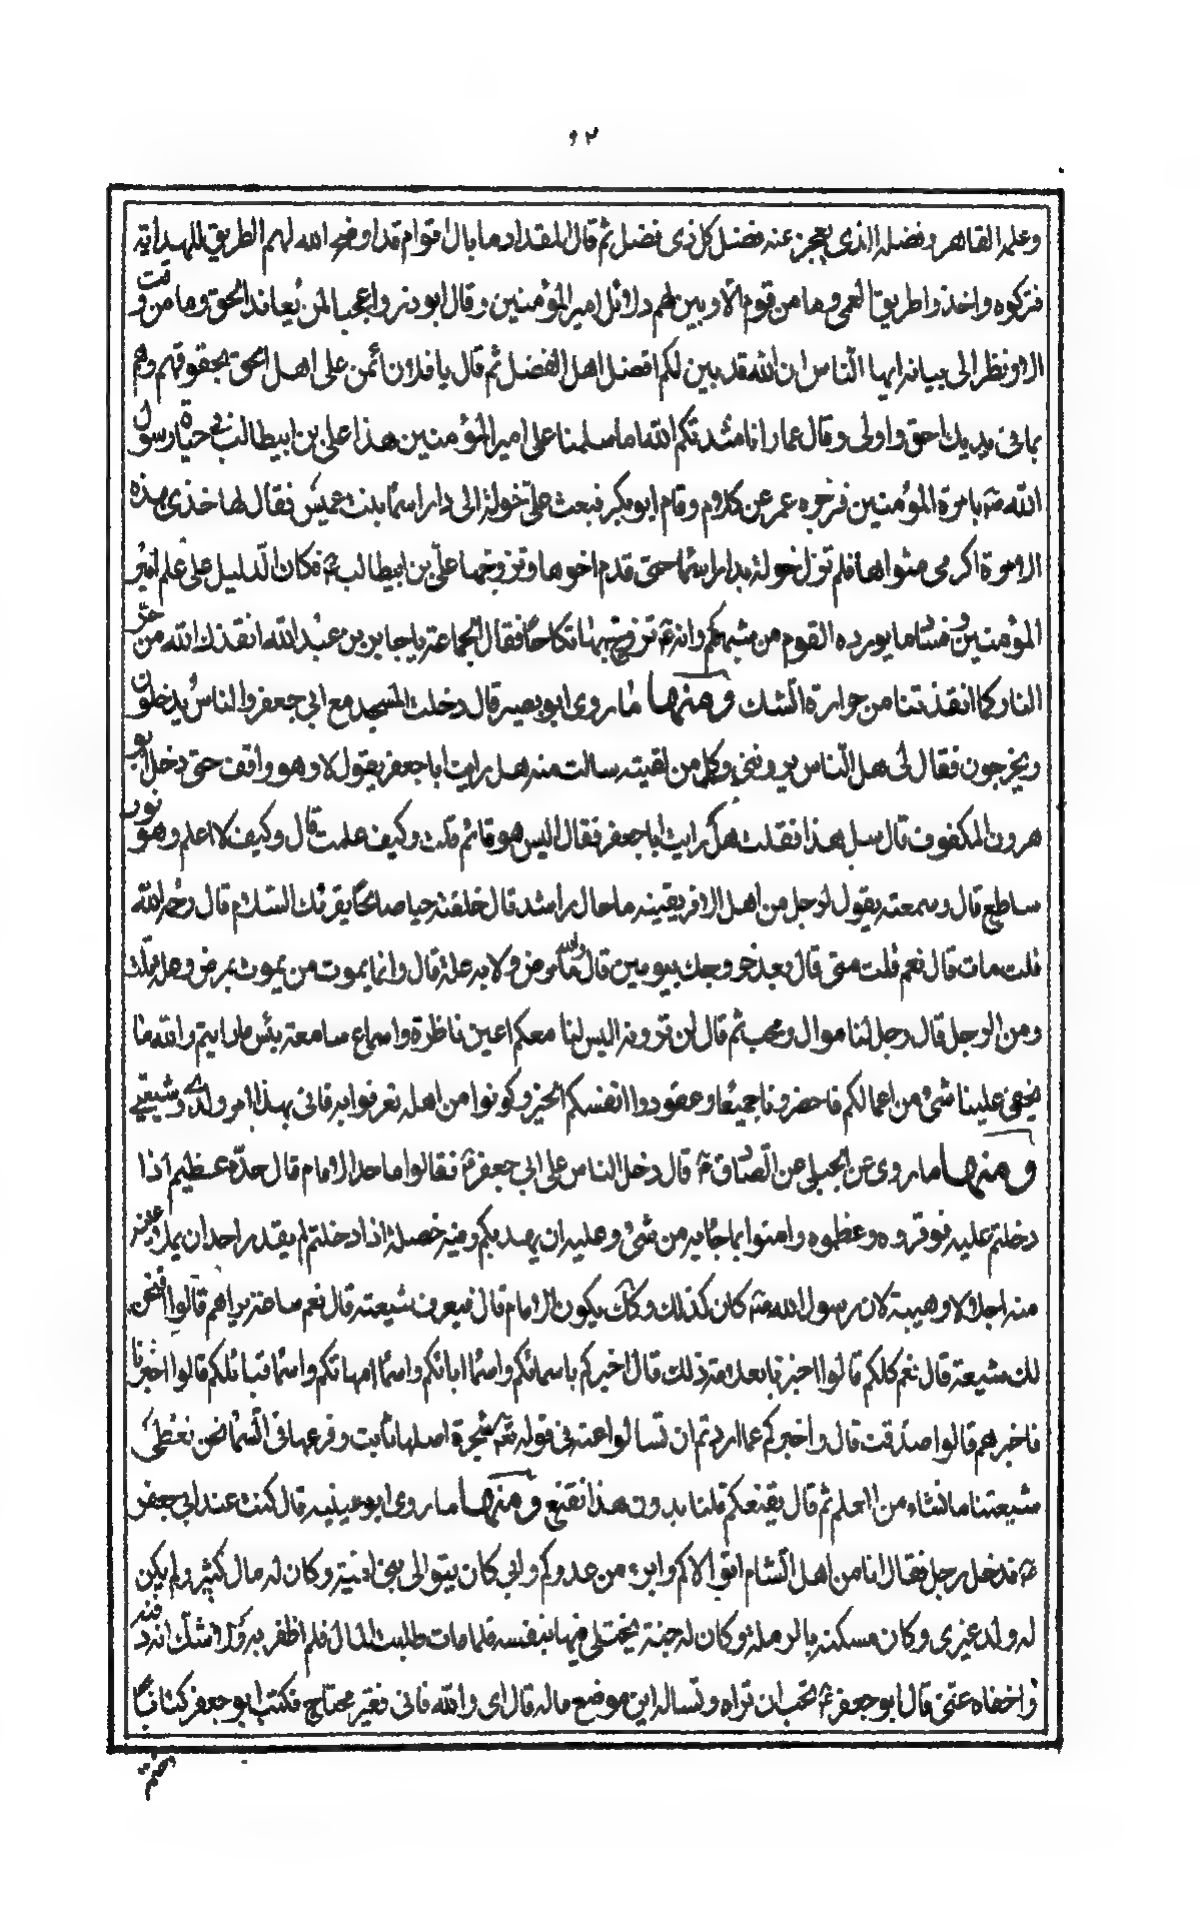 ٩٢
وعلمه القاهر وفضله الذى يعجز عنه فضل كل ذى فضل ثم قال المقداد ما بال اقوام قد اوضح الله لهم الطريق للهداية
فتركوه واخذوا طريق العمى وما من قوم الا وبين لهم دلائل امير المؤمنين وقال ابو ذر واعجبا لمن يعاند الحق وما من وقت
الا ونظر الى بيانه ايها الناس ان الله قد بين لكم افضل اهل الفضل ثم قال يا فلان اتمن على اهل الحق بحقوقهم وهم
بما فى يديك احق واولى وقال عمار انا شدتكم الله اما سلمنا على امير المؤمنين هذا على بن ابيطالب فى حياة رسول
الله ص بامرة المؤمنين فزجره عمر عن كلام وقام ابو بكر فبعث على خولة الى دار اسماء بنت عميس فقال لها خذى بهذه
الامرءة اكرمى مثواها فلم تزل خولة بدار اسماء حتى قدم اخوها وتزوجها على بن ابيطالب ع فكان الدليل على علم امير
المؤمنين وفساد ما يورده القوم من سبيهم وانه ع تزوج بها نكاحا فقال الجماعة يا جابر بن عبد الله انقذك الله من حر
النار كما انقذتنا من حرارة الشك ومنها ما روى ابو بصير قال دخلت المسجد مع ابى جعفر والناس يدخلون
ويخرجون فقال لى هل الناس يرونى وكل من لقيته سالت منه هل رايت ابا جعفر يقول لا وهو واقف حتى دخل ابو
هرون المكفوف قال سل هذا فقلت هل رايت ابا جعفر فقال اليس هو قائم قلت وكيف علمت قال وكيف لا اعلم وهو نور
ساطع قال وسمعته يقول لرجل من اهل الافريقيه ما حال راشد قال خلفته حيا صالحا يقرئك السلام قال رحمه الله
قلت مات قال نعم قلت متى قال بعد خروجك بيومين قال والله ما مرض ولا به علة قال وانما يموت من يموت بمرض وعلة قلت
ومن الرجل قال رجل لنا موال ومحب ثم قال لئن ترون اليس لنا معكم اعين ناظرة واسماع سامعة بئس ما رايتم والله ما
يخفى علينا شئ من اعمالكم فاحضرونا جميعا وعودوا انفسكم الخير وكونوا من اهله تعرفوا به فانى بهذا امر ولدى وشيعتى
ومنها ما روى عن الحلبى عن الصادق ع قال دخل الناس على ابى جعفر ع فقالوا ما حد الامام قال حده عظيم اذا
دخلتم عليه فوقروه وعظموه وامنوا بما جاء به من شئ وعليه ان يهديكم وفيه خصلة اذا دخلتم لم يقدر احد ان يملا عينه
منه اجلالا وهيبة لان رسول الله ص كان كذلك وكذلك يكون الامام قال فيعرف شيعته قال نعم ساعة يراهم قالوا فنحن
لك شيعة قال نعم كلكم قالوا اخبرنا بعلامة ذلك قال اخبركم باسمائكم واسماء ابائكم وامهاتكم واسماء قبائلكم قالوا اخبرنا
فاخبرهم قالوا صدقت قال واخبركم عما اردتم ان تسالوا عنه فى قوله تع كشجرة اصلها ثابت وفرعها فى السماء نحن نعطى
شيعتنا ما نشاء من العلم ثم قال يقنعكم قلنا بدون هذا نقنع ومنها ما روى ابو عيينه قال كنت عند ابى جعفر
ع فدخل رجل فقال انا من اهل الشام اتوالاكم وابرء من عدوكم وابى كان يتوالى بنى امية وكان له مال كثير ولم يكن
له ولد غيرى وكان مسكنه بالرملة وكان له جنة يتخلى فيها بنفسه فلما مات طلبت المال فلم اظفر به ولا اشك انه دفنه
واخفاه عنى قال ابو جعفر ع تحب ان تراه وتساله اين موضع ماله قال اى والله فانى فقير محتاج فكتب ابو جعفر كتابا
ختمه